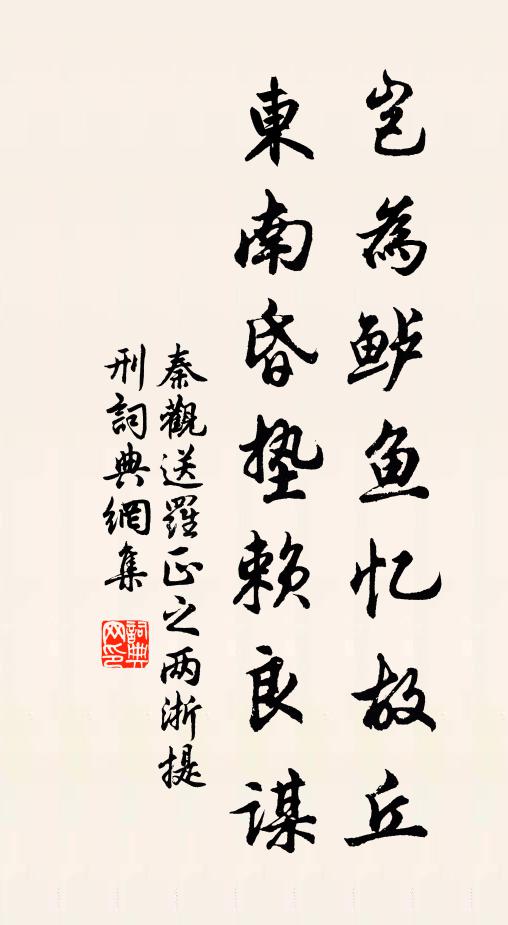 岂為鲈鱼忆故丘
東南昏垫赖良謀
秦觀送羅正之两浙提
刑詞典網集
詞典网印